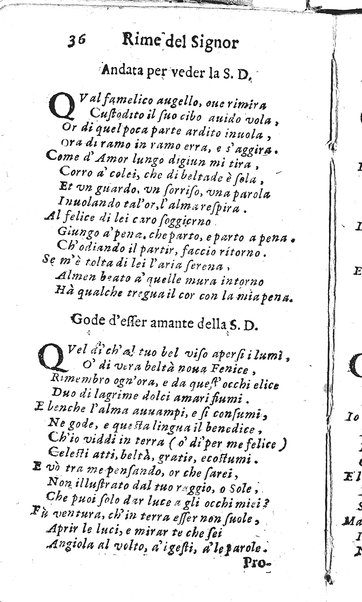 36 Rime del Signor
Andata per veder la S. D.
QVal famelico augello, oue rimira
Custodito il suo cibo auido vola,
Or di quel poca parte ardito inuola,
Ora di ramo in ramo erra, e s'aggira.
Come d'Amor lungo digiun mi tira,
Corro a' colei, che di beltade è sola,
Et vn guardo, vn sorriso, vna parola
Inuolando tal'or, l'alma respira.
Al felice di lei caro soggiorno
Giungo a' pena, che parto, e parto a pena.
Ch'odiando il partir, faccio ritorno.
Se m'è tolta di lei l'aria serena,
Almen beato a' quelle mura intorno
Hà qualche tregua il cor con la mia pena.
Gode d'esser amante della S. D.
QVel dì ch'al tuo bel viso apersi i lumi,
O' di vera beltà noua Fenice,
Rimembro ogn'ora, e da quest'occhi elice
Duo di lagrime dolci amari fiumi.
E benche l'alma auuampi, e si consumi,
Ne gode, e questa lingua il benedice,
Ch'io viddi in terra (o' dì per me felice)
Celesti atti, beltà, gratie, e costumi.
E vò tra me pensando, or che sarei,
Non illustrato dal tuo raggio, o Sole,
Che puoi solo dar luce a gli occhi miei?
Fù ventura, ch'in terra esser non suole,
Aprir le luci, e mirar te che sei
Angiola al volto, a' i gesti, a' le parole.
Pro-